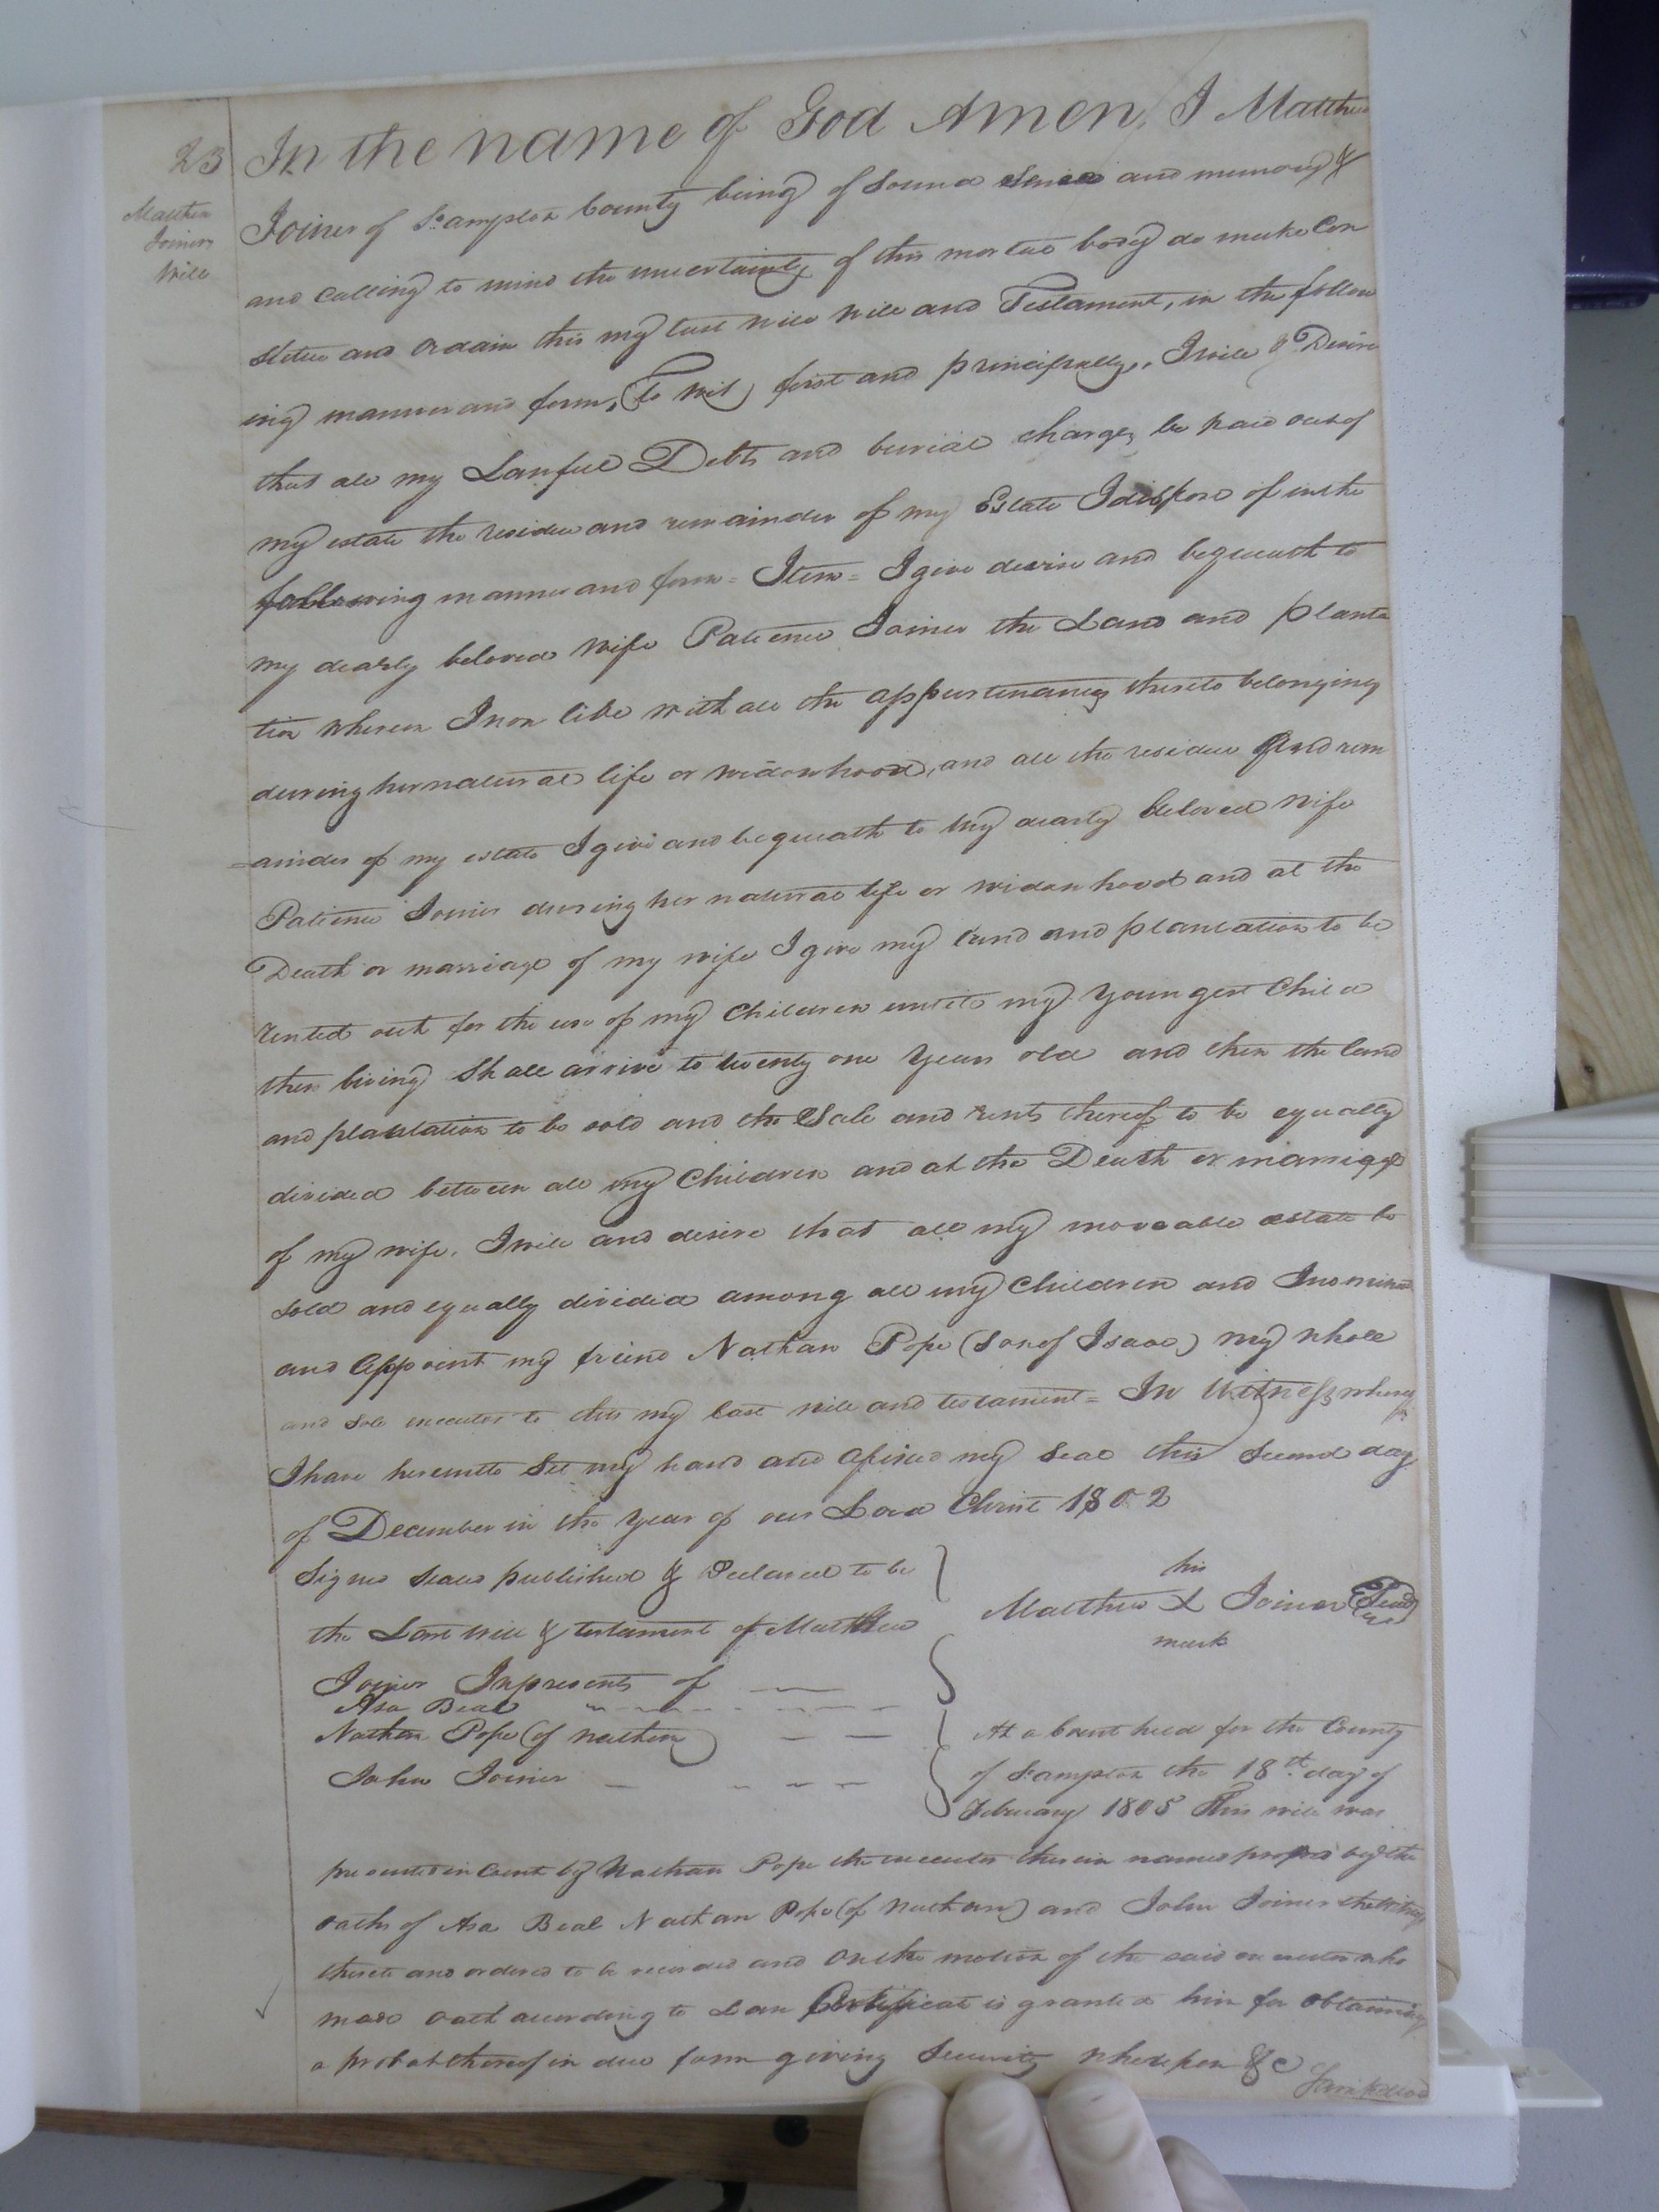 23
Matthew
Joiners
Will
In the name of God Amen, I Matthew
Joiner of S:ampton County being of Sound Sence and memory &
and calling to mind the uncertainty of this mortal body do make Con
stitue and ordain this my last Will Will and Testament, in the follow
ing manner and form, (To Wit) first and principally, I will & Desire
that all my Lawfull Debts and burial charges be paid out of
my estate the residue and remainder of my Estate I dispose of in the
following manner and form = Item = I give devise and bequeath to
my dearly beloved wife Patience Joiner the Land and planta
tion whereon I now live with all the appurtenances thereto belonging
during her natural life or widowhood, and all the residue and rem
=ainder of my estate I give and bequeath to my dearly beloved wife
Patience Joiner during her natural life or widowhood and at the
Death or marriage of my wife I give my land and plantation to be
rented out for the use of my Children until my Youngest Child
then living Shall arrive to twenty one Years old and then the land
and plantation to be sold and the Sale and rents thereof to be equally
divided between all my Children and at the Death or marriage
of my wife, I will and desire that all my moveable estate be
sold and equally divided among all my Children and I nominate
and Appoint my friend Nathan Pope (Son of Isaac) my whole
and sole executor to this my last will and testament = In Witness whereof
I have hereunto Set my hand and afixed my Seal this Second day
of December in the Year of our Lord Christ 1802
Signed Sealed published & Declared to be
the Last Will & testament of Matthew
Joiner In presents of
his
Matthew X Joiner (Seal)
mark
Asa Beal
Nathan Pope (of Nathan)
John Joiner
At a Court held for the County
of S:ampton the 18th. day of
February 1805 This will was
presented in Court by Nathan Pope the executor therein named proved by the
oaths of Asa Beal Nathan Pope (of Nathan) and John Joiner the Witnesses
thereto and ordered to be recorded and On the motion of the said executor who
made oath according to Law Certificate is granted him for obtaining
a probat thereof in due form giving Security whereupon &C